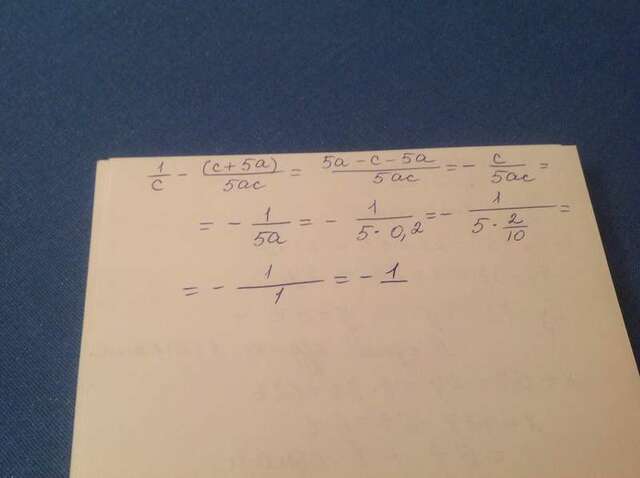 1/c - (c+5a)/5ac = 5a-c-5a/5ac = - c/5ac =
= - 1/5a = - 1/5·0,2 = - 1/5·2/10 =
= - 1/1 = - 1